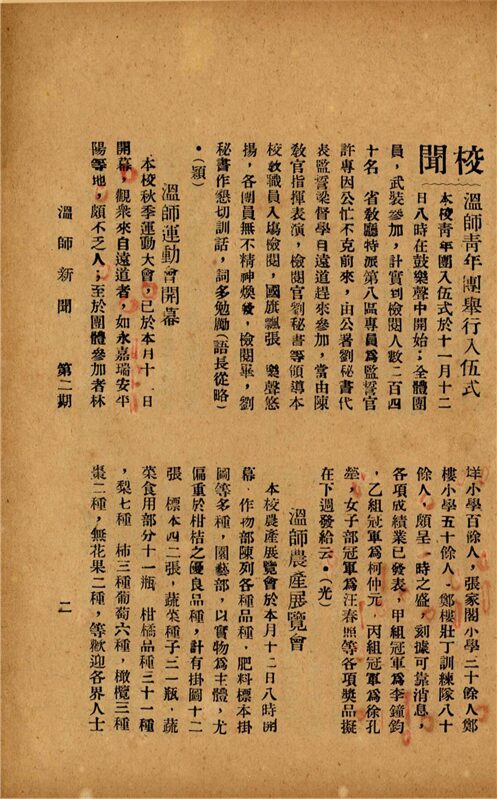 校聞
溫師青年團舉行入伍式
本校青年團入伍式於十一月十二
日八時在鼓樂聲中開始；全體團
員，武裝參加，計實到檢閱人數二百四
十名　省敎廳特派第八區專員爲監誓官
許專因公忙不克前來，由公署劉秘書代
表監誓梁督學自遠道趕來參加，當由陳
敎官指揮表演，檢閱官劉秘書等領導本
校敎職員入塲檢閱，國旗飄張　樂聲悠
揚，各團員無不精神煥發，檢閱畢，劉
秘書作懇切訓話，詞多勉勵（語長從略）
。（穎）
溫師運動會開幕
本校秋季運動大會，已於本月十　日
開幕，觀衆來自遠道者，如永嘉瑞安平
陽等地，頗不乏人；至於團體參加者林
垟小學百餘人，張家閣小學二十餘人鄭
樓小學五十餘人，鄭樓壯丁訓練隊八十
餘人，頗呈一時之盛，刻據可靠消息，
各項成績業已發表，甲組冠軍爲李鐘鈞
，乙組冠軍爲柯仲元，丙組冠軍爲徐孔
，女子部冠軍爲汪春照等各項獎品擬
在下週發給云。（光）
溫師農產展覽會
本校農產展覽會於本月十二日八時開
幕，作物部陳列各種品種，肥料標本掛
圖等多種，園藝部，以實物爲主體，尤
偏重於柑桔之優良品種，計有掛圖十二
張　標本四二張，蔬菜種子三一瓶，蔬
菜食用部分十一瓶　柑橘品種三十一種
，梨七種　柿三種葡萄六種，橄欖三種
棗二種，無花果二種，等歡迎各界人士
溫師新聞　第二期　二